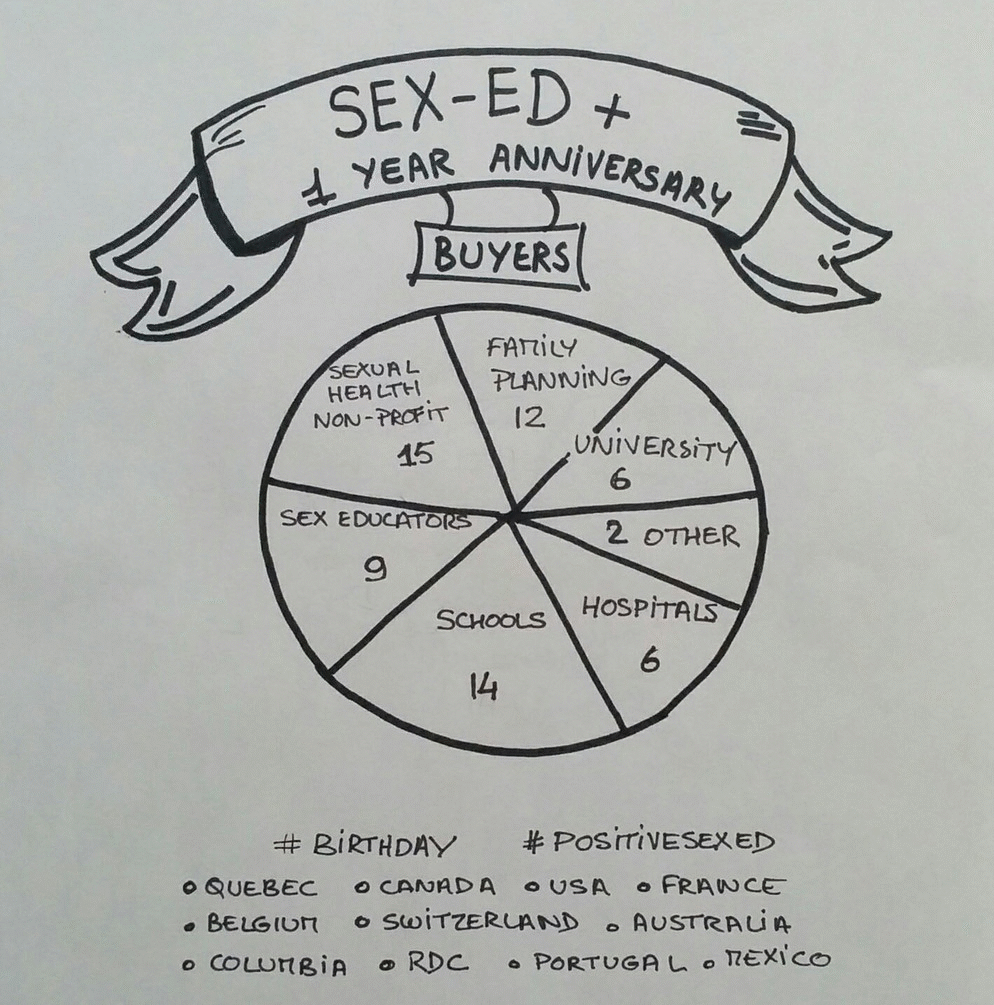 SEX-ED +
1 YEAR ANNIVERSARY
BUYERS
FAMILY
PLANNING
12
UNIVERSITY
6
2 OTHER
HOSPITALS
6
SCHOOLS
14
SEX EDUCATORS
9
SEXUAL
HEALTH
NON-PROFIT
15
# BIRTHDAY # POSITIVESEXED
• QUEBEC • CANADA • USA • FRANCE
• BELGIUM • SWITZERLAND • AUSTRALIA
• COLUMBIA • RDC • PORTUGAL • MEXICO